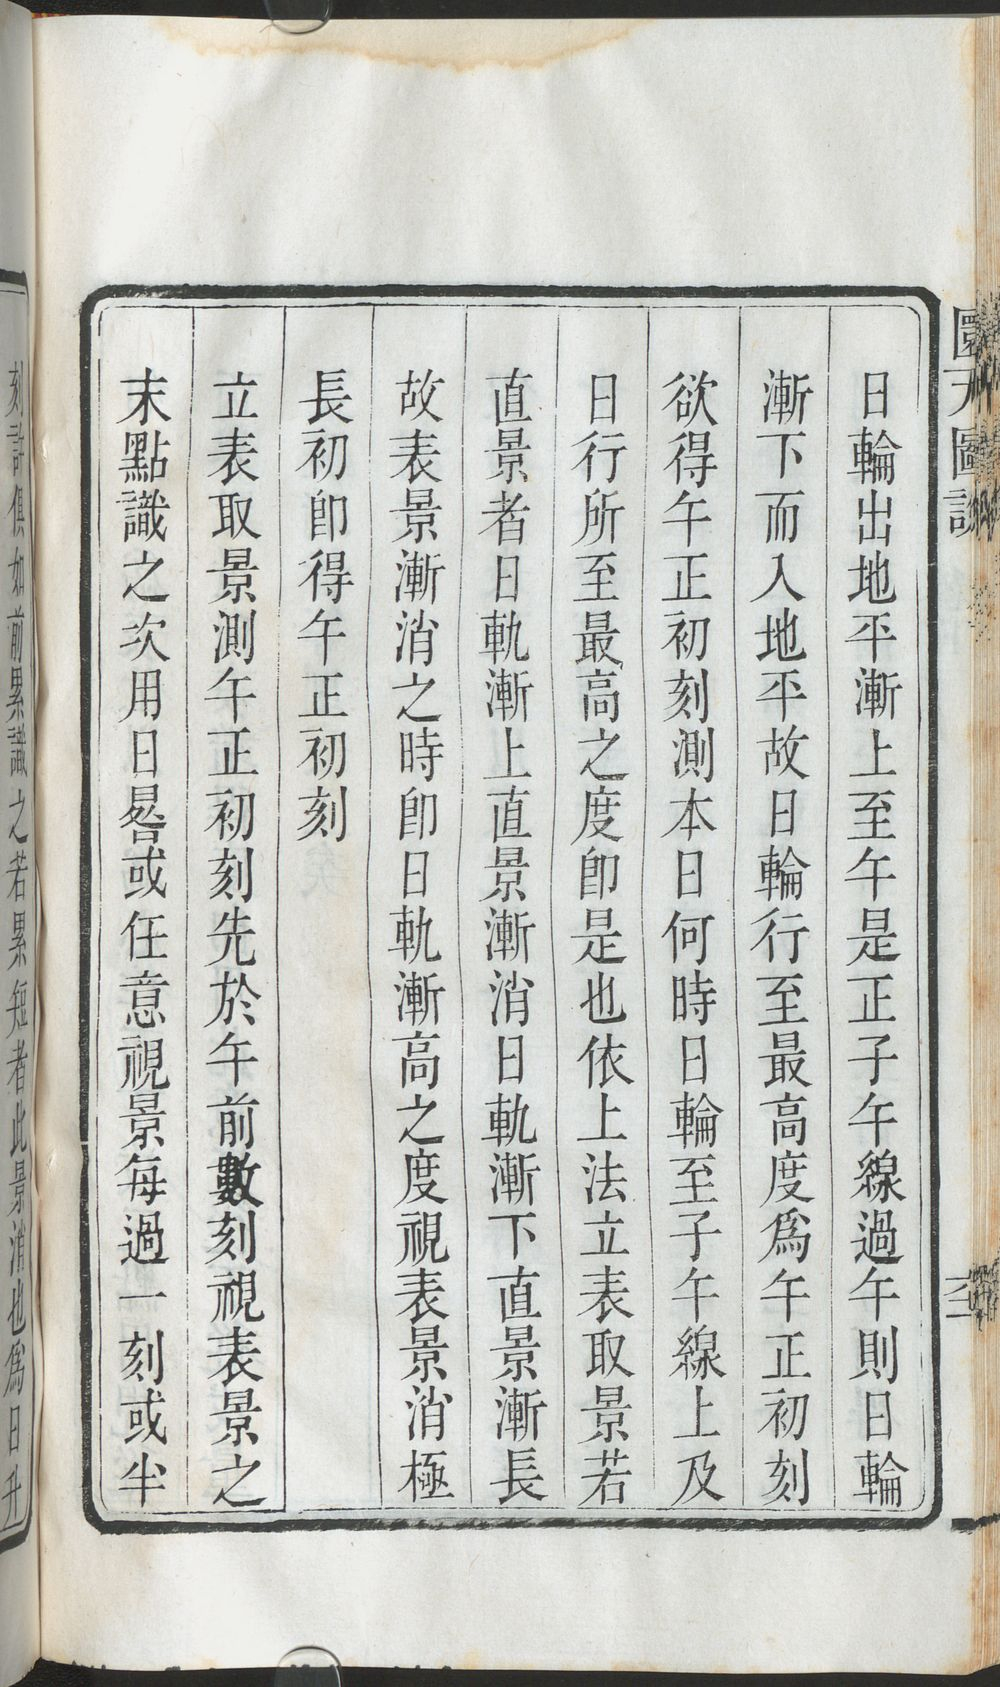 圜天圖說
日輪出地平漸上至午是正子午線過午則日輪
漸下而入地平故日輪行至最高度爲午正初刻
欲得午正初刻測本日何時日輪至子午線上及
日行所至最高之度卽是也依上法立表取景若
直景者日軌漸上直景漸消日軌漸下直景漸長
故表景漸消之時卽日軌漸高之度視表景消極
長初卽得午正初刻
立表取景測午正初刻先於午前數刻視表景之
末點識之次用日晷或任意視景每過一刻或半
刻許俱如前累識之若累短者此景消也爲日升